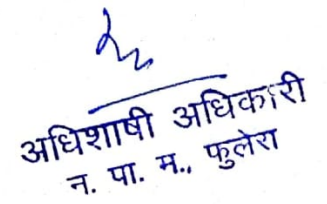 अधिशाषी अधिकारी
न. पा. म., फुलेरा